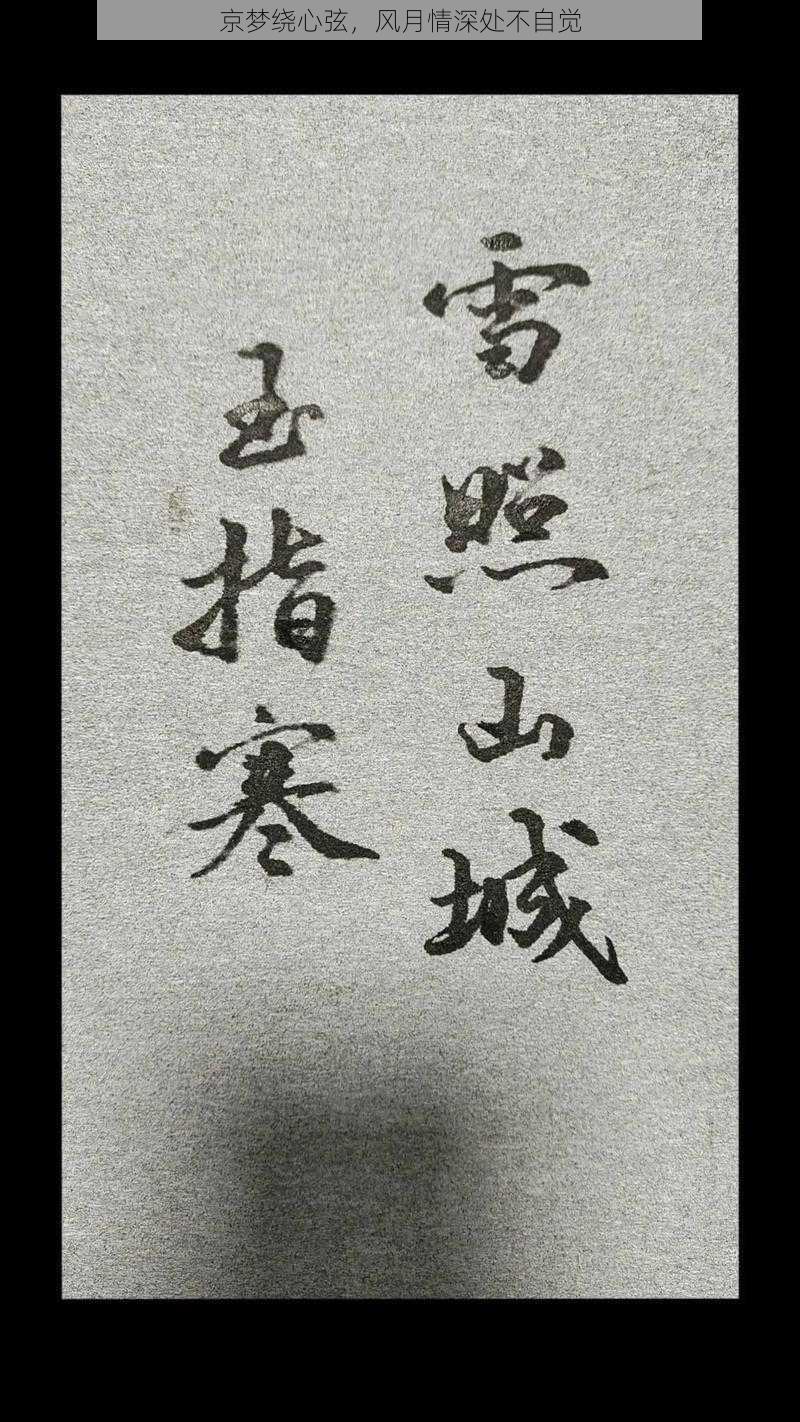 京梦绕心弦，风月情深处不自觉
雪照山城
玉指寒